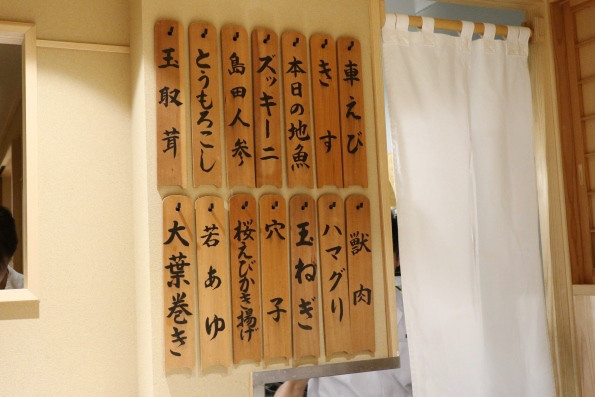 車えび
きす
本日の地魚
ズッキーニ
島田人参
とうもろこし
玉取茸
獣肉
ハマグリ
玉ねぎ
穴子
桜えびかき揚げ
若あゆ
大葉巻き